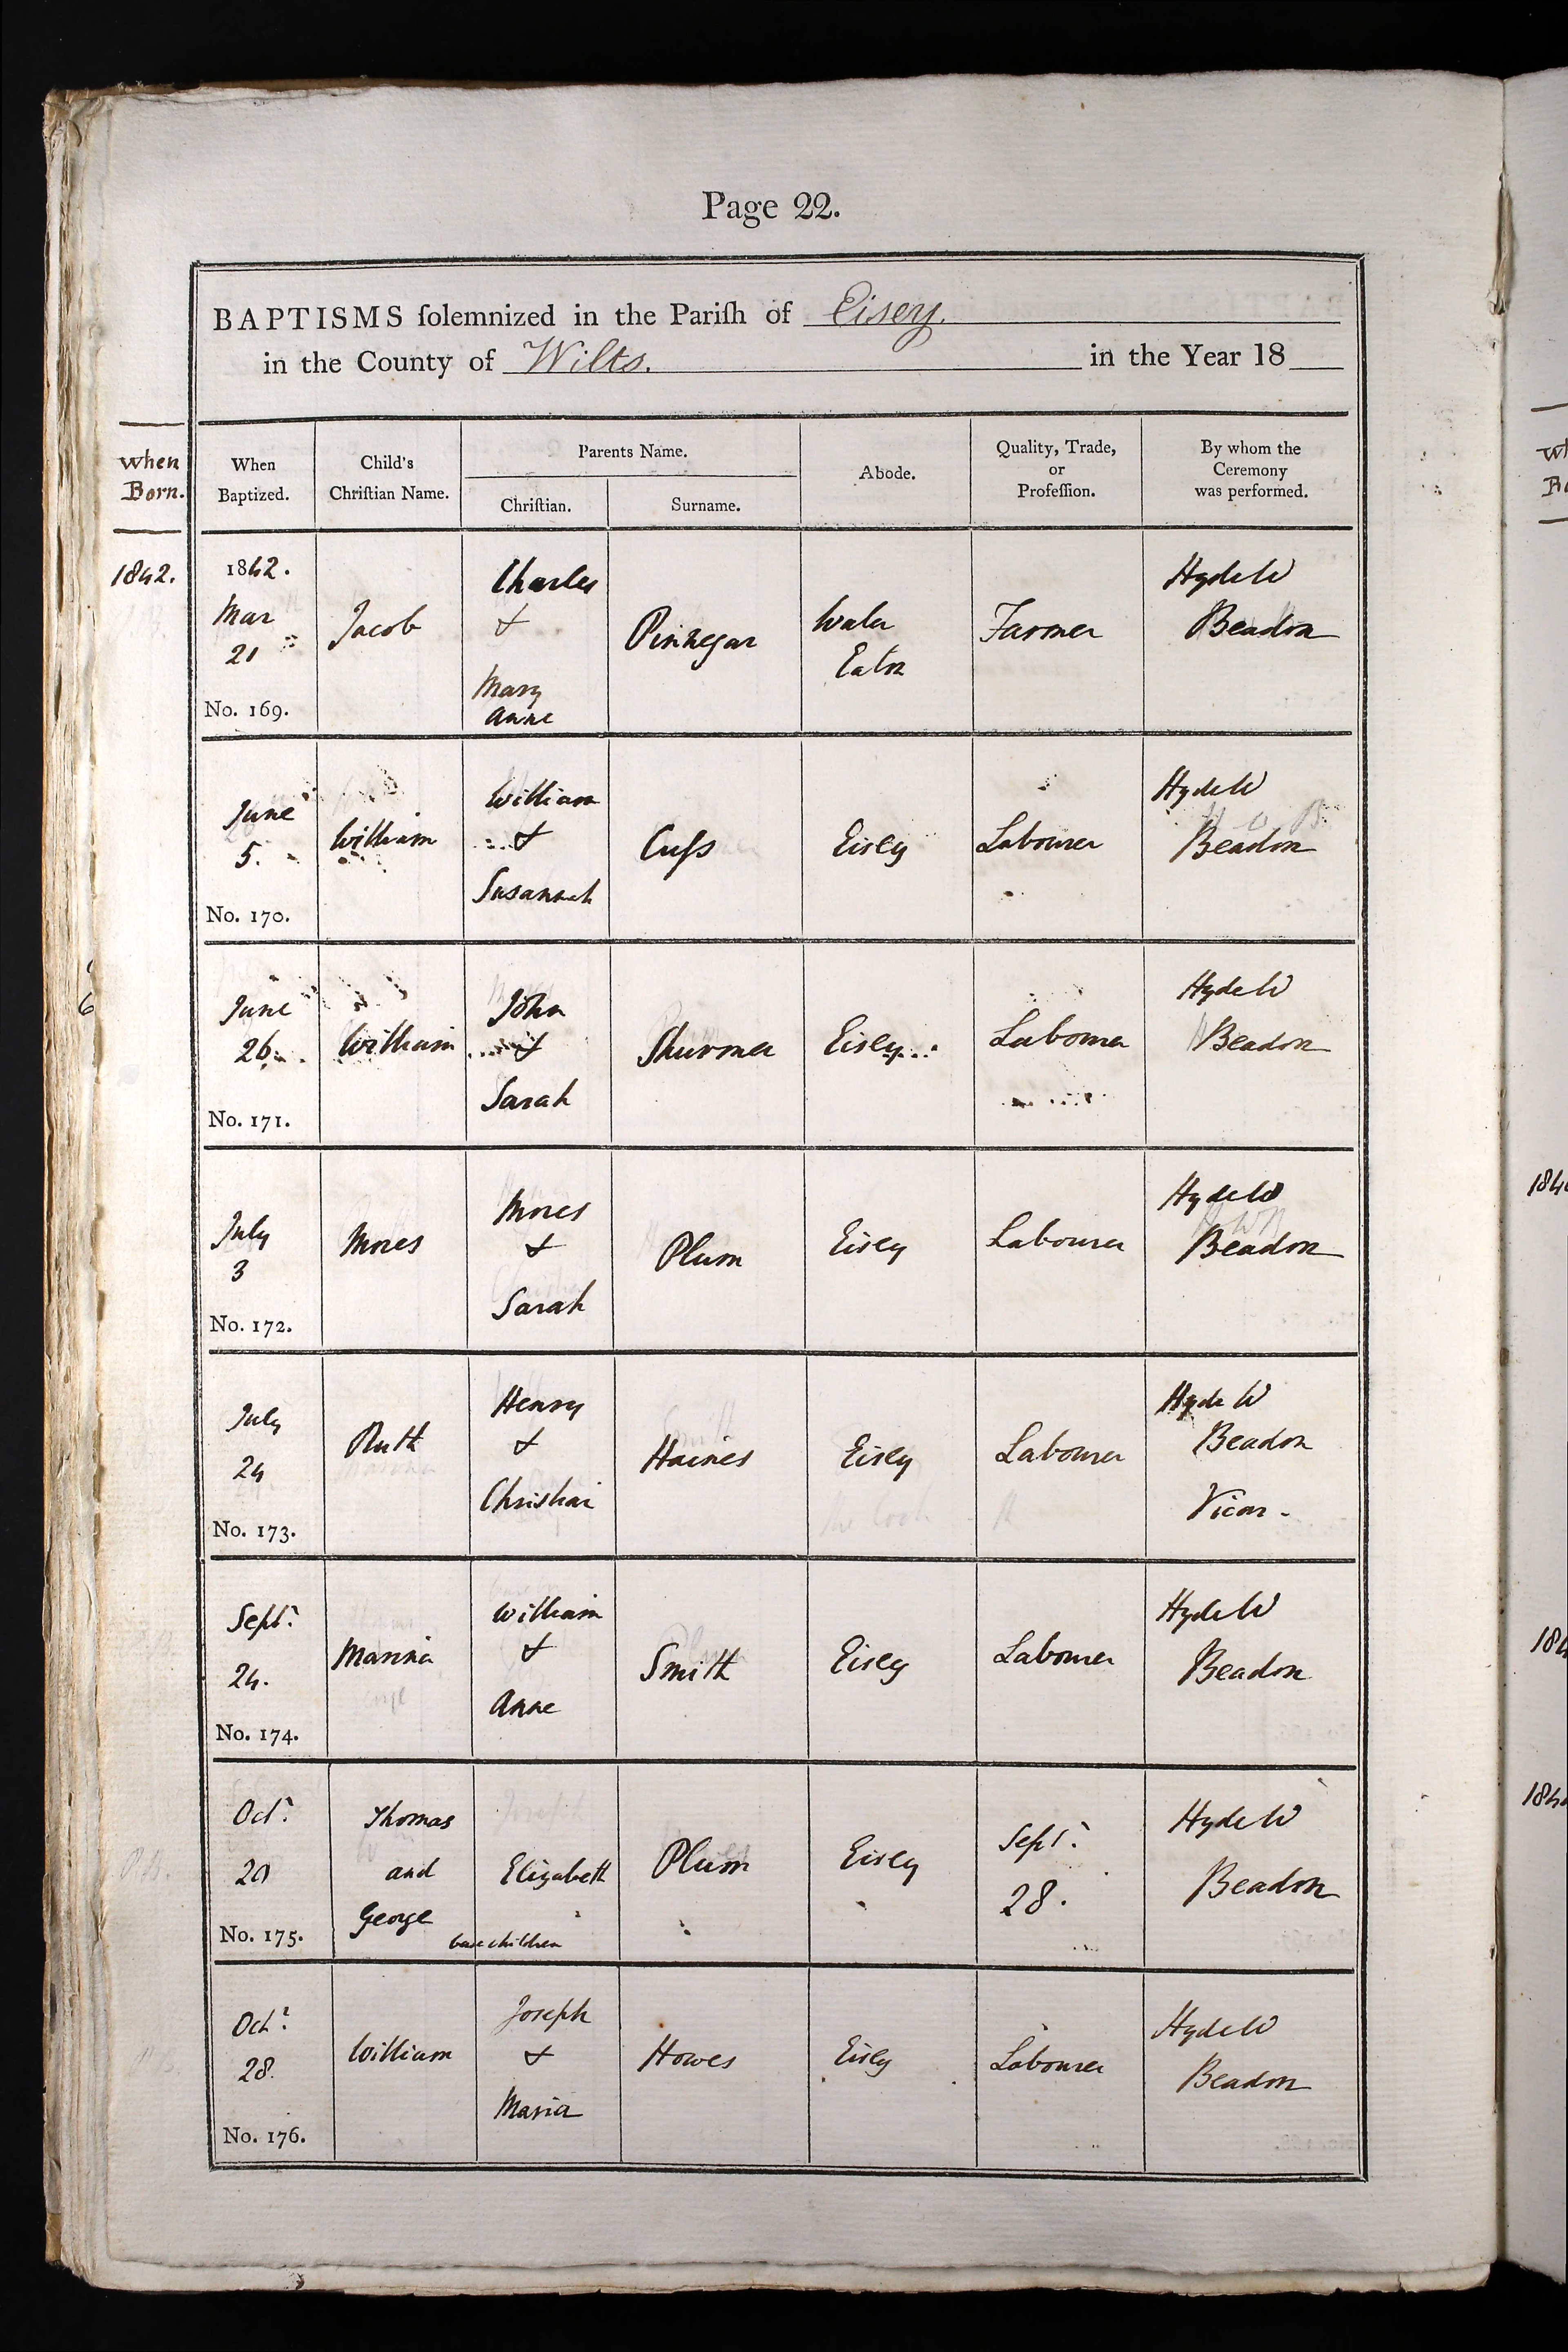 Page 22.
BAPTISMS ſolemnized in the Pariſh of Eisey.
in the County of Wilts. in the Year 18
When
Born.
When
Baptized.
Child's
Chriſtian Name.
Parents Name.
Chriſtian.
Surname.
Abode.
Quality, Trade,
or
Profeſſion.
By whom the
Ceremony
was performed.
1842.
1842.
Mar
21
No. 169.
Jacob
Charles
&
Mary
Anne
Pinnegar
Water
Eaton
Farmer
Hyde W
Beadon
June
5.
No. 170.
William
William
&
Susannah
Cuſs
Eisey
Labourer
Hyde W
Beadon
June
26.
No. 171.
William
John
&
Sarah
Shurmer
Eisey
Labourer
Hyde W
Beadon
July
3
No. 172.
Moses
Moses
&
Sarah
Plum
Eisey
Labourer
Hyde W
Beadon
July
24
No. 173.
Ruth
Henry
&
Christian
Haines
Eisey
Labourer
Hyde W
Beadon
Vicar.
Sept.
24.
No. 174.
William
&
Anne
Smith
Eisey
Labourer
Hyde W
Beadon
Oct.
No. 175.
Thomas
and
George
Elizabeth
base children
Plum
Eisey
Sept.
28.
Hyde W
Beadon
Oct.
28.
No. 176.
William
Joseph
&
Maria
Howes
Eisey
Labourer
Hyde W
Beadon